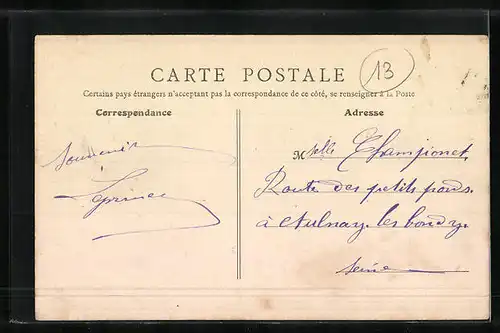 CARTE POSTALE
13
Certains pays étrangers n'acceptant pas la correspondance de ce côté, se renseigner à la Poste
Correspondance
Adresse
Souvenir
Leprince
Mselle Championet
Route des petits ponts
à Aulnay-les-bondy
Seine